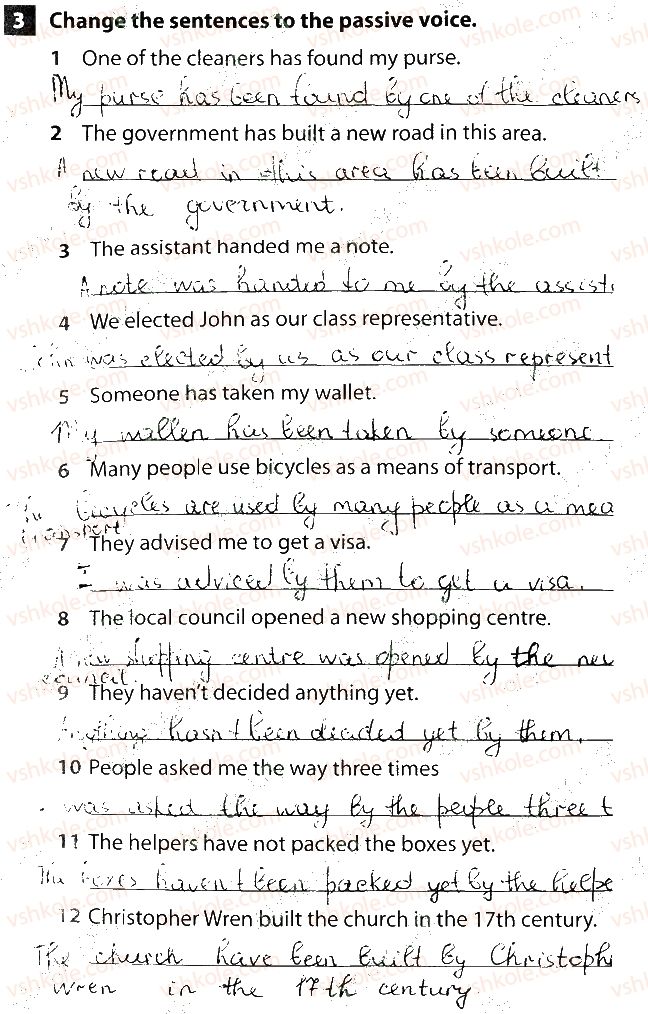 3 Change the sentences to the passive voice.
1 One of the cleaners has found my purse.
My purse has been found by one of the cleaners
2 The government has built a new road in this area.
A new road in this area has been built
by the government.
3 The assistant handed me a note.
A note was handed to me by the assist
4 We elected John as our class representative.
was elected by us as our class represent
5 Someone has taken my wallet.
My wallen has been taken by someone.
6 Many people use bicycles as a means of transport.
bicycles are used by many people as a mea
transport
7 They advised me to get a visa.
I was adviced by them to get a visa.
8 The local council opened a new shopping centre.
A new shopping centre was opened by the new
council.
9 They haven't decided anything yet.
Anything hasn't been decided yet by them.
10 People asked me the way three times
was asked the way by the people three t
11 The helpers have not packed the boxes yet.
The boxes haven't been packed yet by the helpe
12 Christopher Wren built the church in the 17th century.
The church have been built by Christoph
Wren in the 17th century.